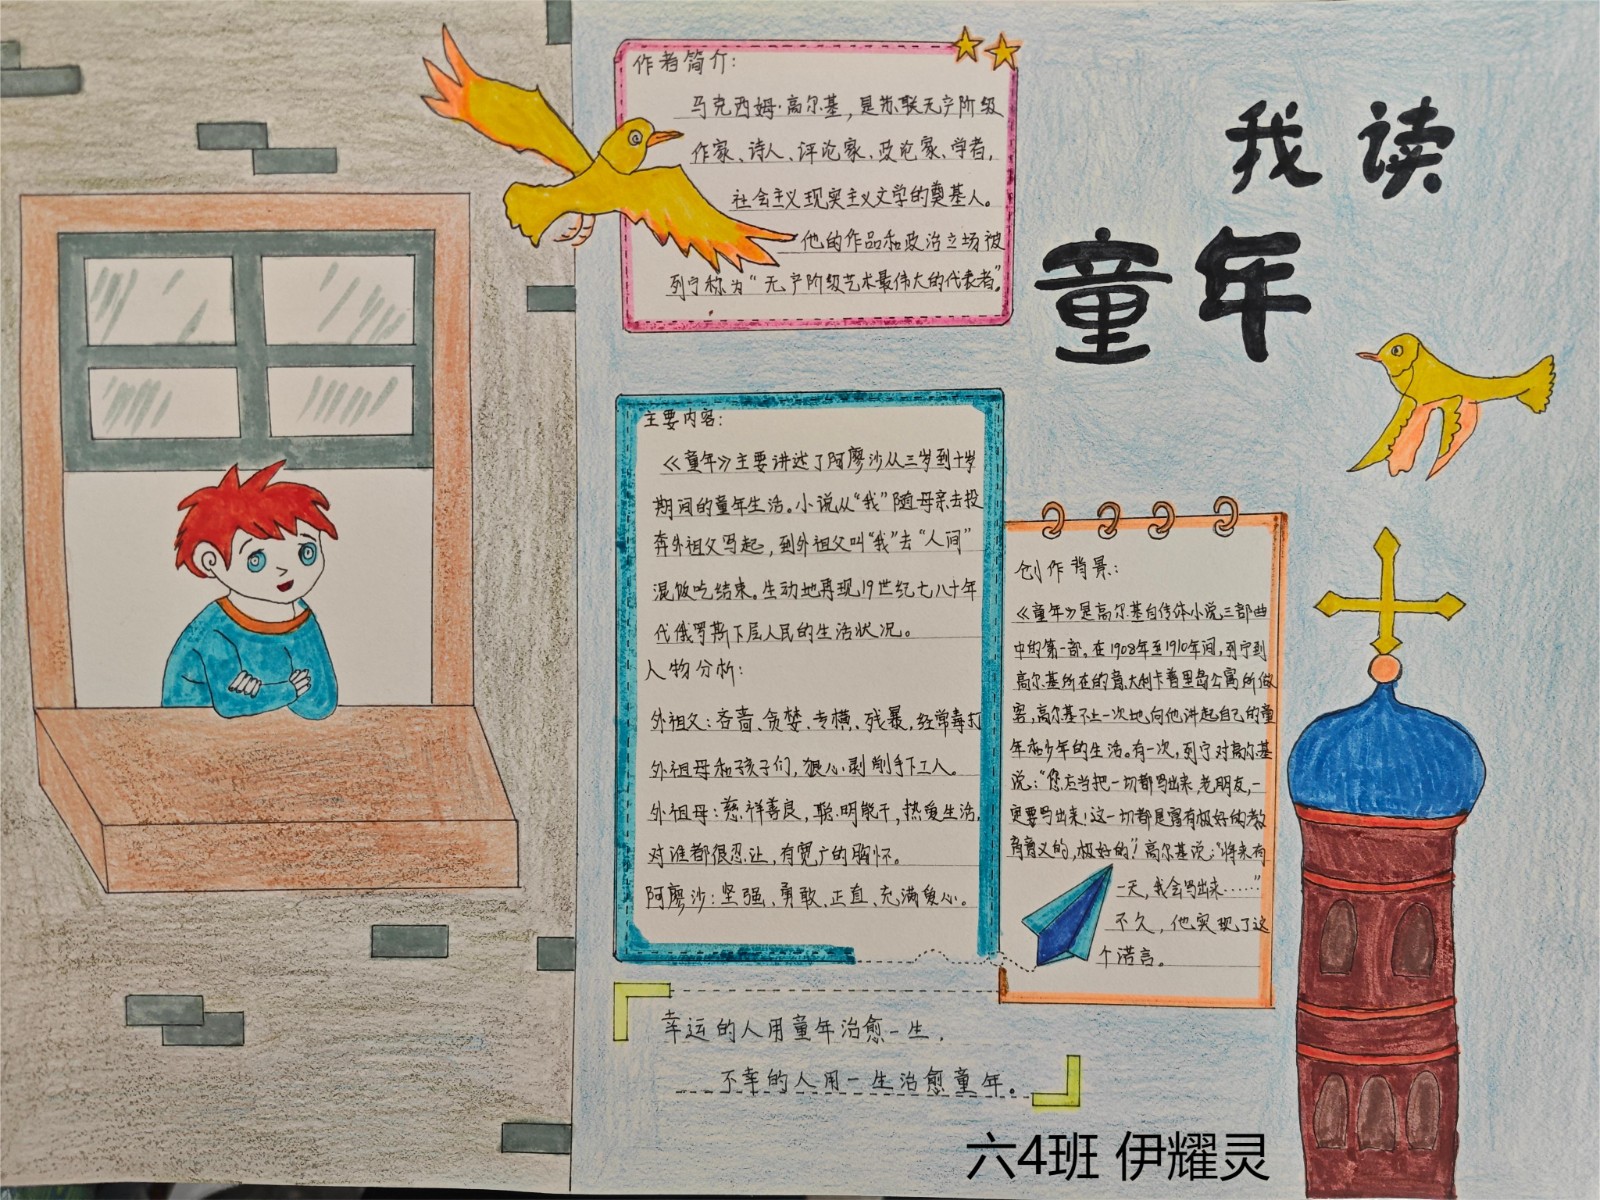 我读
童年
作者简介：
马克西姆·高尔基，是苏联无产阶级
作家、诗人、评论家、政论家、学者，
社会主义现实主义文学的奠基人。
他的作品和政治立场被
列宁称为“无产阶级艺术最伟大的代表者”。
主要内容：
《童年》主要讲述了阿廖沙从三岁到十岁
期间的童年生活。小说从“我”随母亲去投
奔外祖父写起，到外祖父叫“我”去“人间”
混饭吃结束。生动地再现19世纪七八十年
代俄罗斯下层人民的生活状况。
人物分析：
外祖父：吝啬、贪婪、专横、残暴，经常毒打
外祖母和孩子们，狠心剥削手下工人。
外祖母：慈祥善良，聪明能干，热爱生活，
对谁都很忍让，有宽广的胸怀。
阿廖沙：坚强、勇敢、正直、充满爱心。
创作背景：
《童年》是高尔基自传体小说三部曲
中的第一部。在1908年至1910年间，列宁到
高尔基所在的意大利卡普里岛公寓所做
客，高尔基不止一次地向他讲起自己的童
年和少年的生活。有一次，列宁对高尔基
说：“您应当把一切都写出来，老朋友，一
定要写出来！这一切都是富有极好的教
育意义的，极好的！”高尔基说：“将来有
一天，我会写出来……”
不久，他实现了这
个诺言。
幸运的人用童年治愈一生，
不幸的人用一生治愈童年。
六4班 伊耀灵